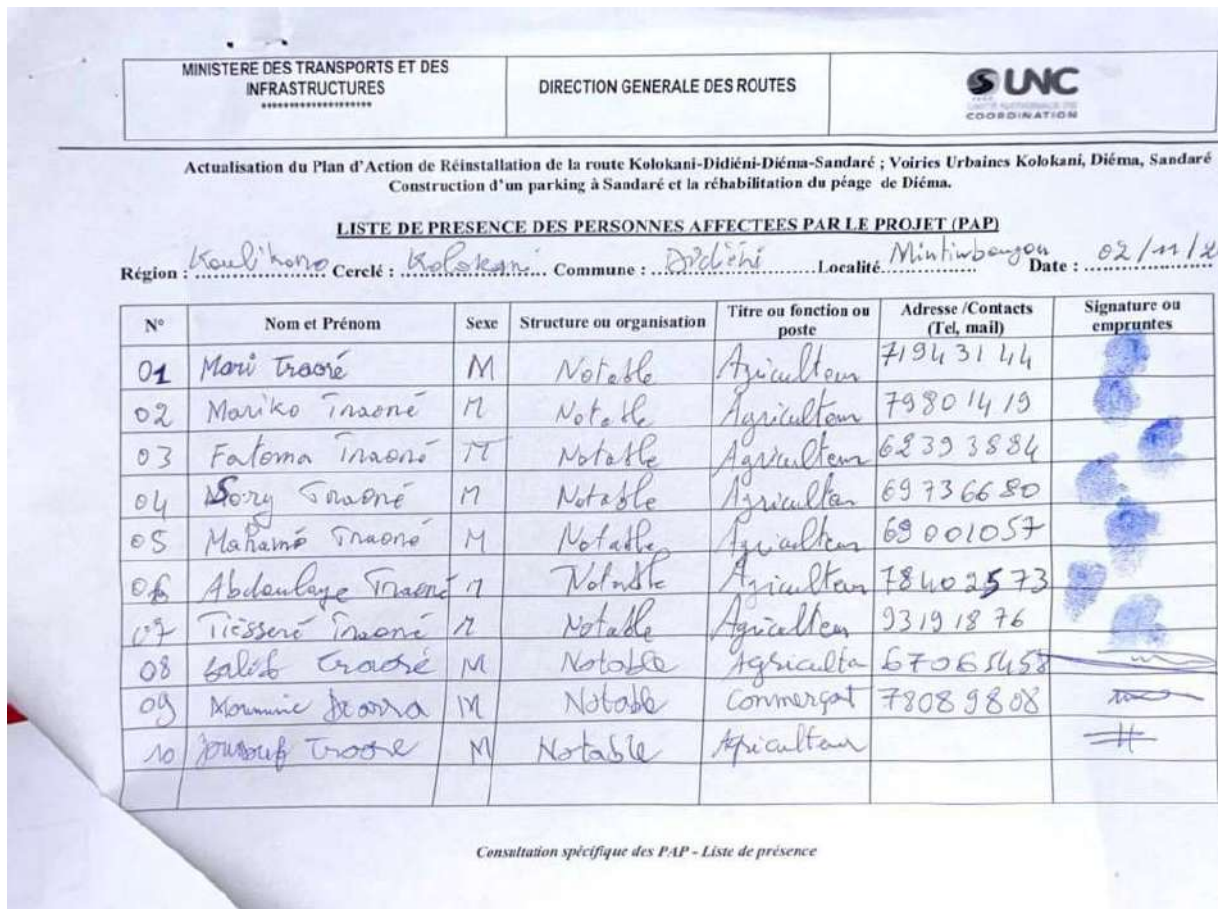 MINISTERE DES TRANSPORTS ET DES
INFRASTRUCTURES
********************
DIRECTION GENERALE DES ROUTES
UNC
UNITÉ NATIONALE DE
COORDINATION
Actualisation du Plan d'Action de Réinstallation de la route Kolokani-Didiéni-Diéma-Sandaré ; Voiries Urbaines Kolokani, Diéma, Sandaré
Construction d'un parking à Sandaré et la réhabilitation du péage de Diéma.
LISTE DE PRESENCE DES PERSONNES AFFECTEES PAR LE PROJET (PAP)
Région : Koulikoro Cerclé : Kolokani Commune : Didiéni Localité Mintimbougou Date : 02/11/2
N° Nom et Prénom Sexe Structure ou organisation Titre ou fonction ou poste Adresse /Contacts (Tel, mail) Signature ou empruntes
01 Mari Traoré M Notable Agriculteur 71943144
02 Mariko Traoré M Notable Agriculteur 79801419
03 Fatoma Traoré M Notable Agriculteur 62393884
04 Sory Traoré M Notable Agriculteur 69736680
05 Mahamé Traoré M Notable Agriculteur 69001057
06 Abdoulaye Traoré M Notable Agriculteur 78402573
07 Tiésseré Traoré M Notable Agriculteur 93191876
08 Salif Traoré M Notable Agriculta 67065458
09 Moumine Diarra M Notable Conmerçat 78089808
10 Youssouf Traore M Notable Agriculteur
Consultation spécifique des PAP - Liste de présence